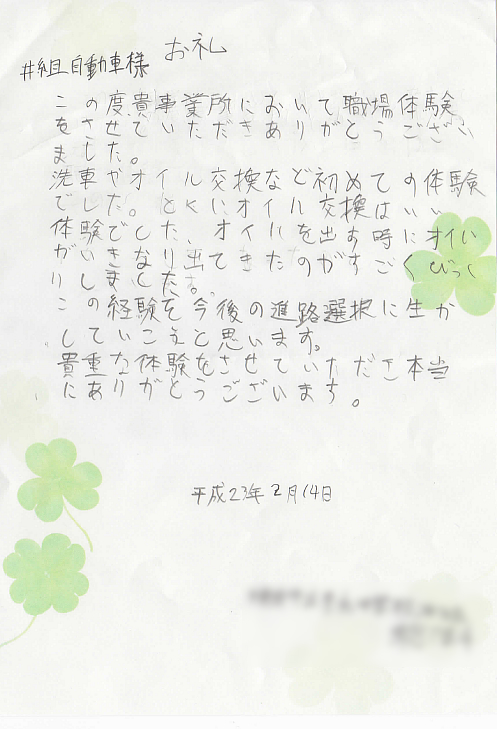 お礼
井組自動車様
この度貴事業所において職場体験
をさせていただきありがとうござい
ました。
洗車やオイル交換など初めての体験
でした。とくにオイル交換はいい
体験でした、オイルを出す時にオイル
がいきなり出てきたのがすごくびっく
りしました。
この経験を今後の進路選択に生か
していこうと思います。
貴重な体験をさせていただき本当
にありがとうございます。
平成23年2月14日